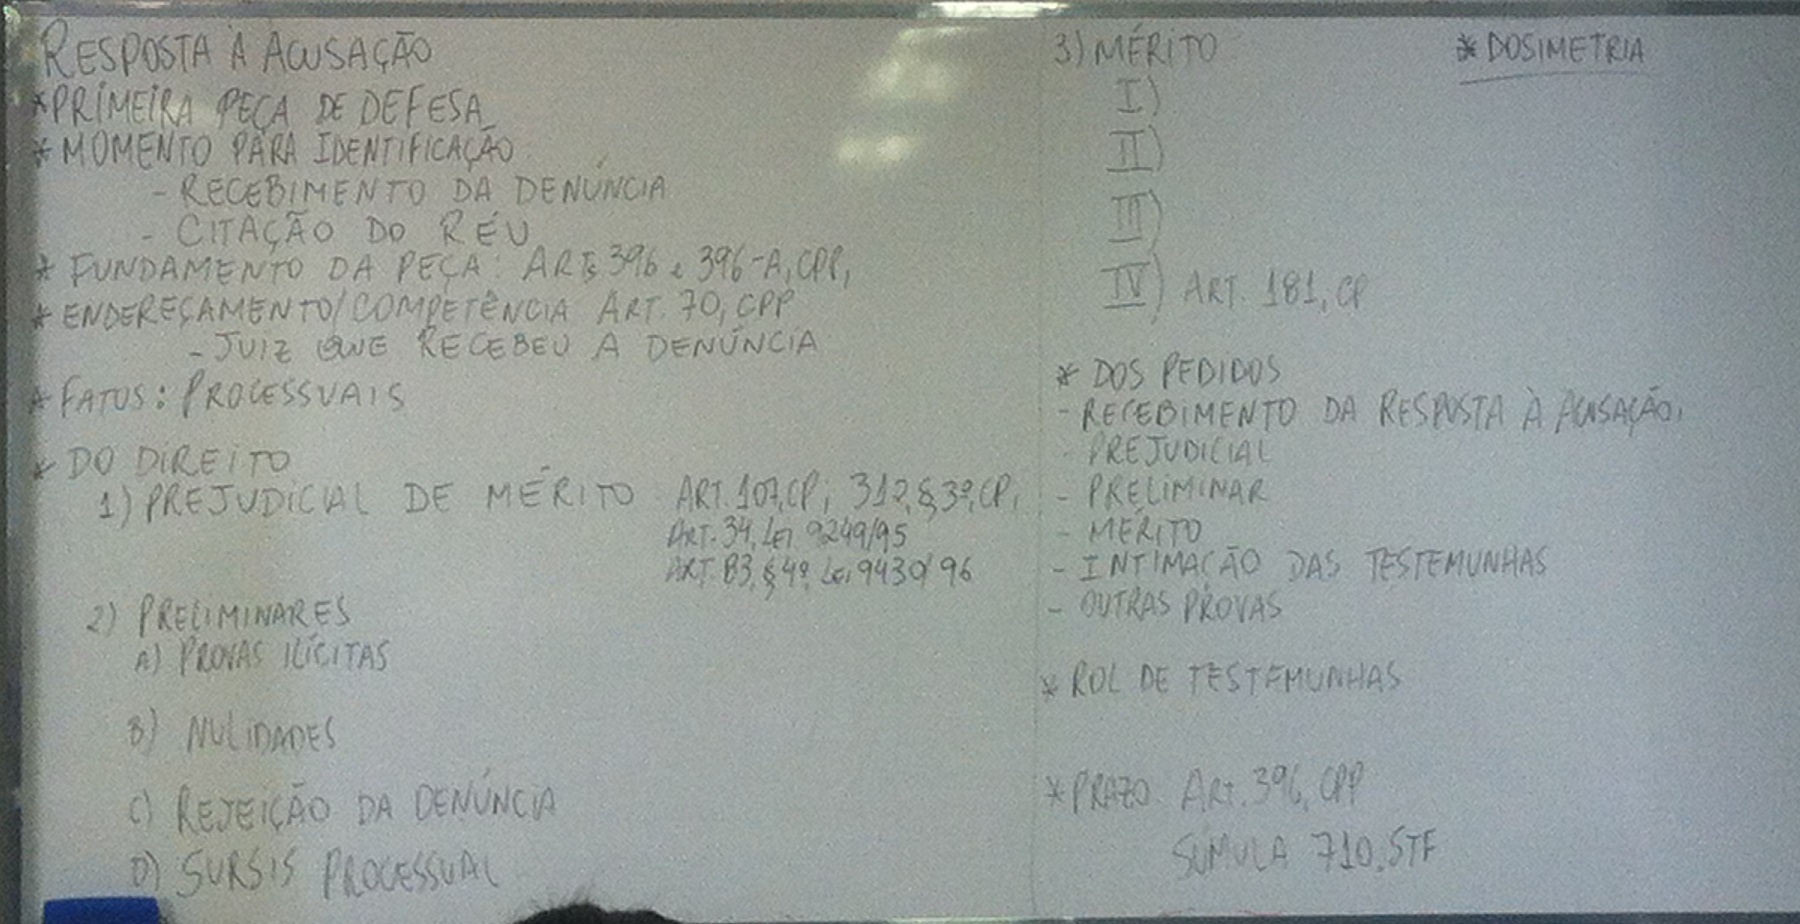 RESPOSTA À ACUSAÇÃO
* PRIMEIRA PEÇA DE DEFESA
* MOMENTO PARA IDENTIFICAÇÃO
- RECEBIMENTO DA DENÚNCIA
- CITAÇÃO DO RÉU
* FUNDAMENTO DA PEÇA: ARTS 396 e 396-A, CPP,
* ENDEREÇAMENTO/COMPETÊNCIA ART. 70, CPP
- JUIZ QUE RECEBEU A DENÚNCIA
* FATOS: PROCESSUAIS
* DO DIREITO
1) PREJUDICIAL DE MÉRITO ART. 107, CP; 312, § 3º, CP,
ART. 34, LEI 9249/95
ART. 83, § 4º, LEI 9430/96
2) PRELIMINARES
A) PROVAS ILÍCITAS
B) NULIDADES
C) REJEIÇÃO DA DENÚNCIA
D) SURSIS PROCESSUAL
3) MÉRITO
I)
II)
III)
IV) ART. 181, CP
* DOS PEDIDOS
- RECEBIMENTO DA RESPOSTA À ACUSAÇÃO,
- PREJUDICIAL
- PRELIMINAR
- MÉRITO
- INTIMAÇÃO DAS TESTEMUNHAS
- OUTRAS PROVAS
* ROL DE TESTEMUNHAS
* PRAZO ART. 396, CPP
SÚMULA 710, STF
* DOSIMETRIA